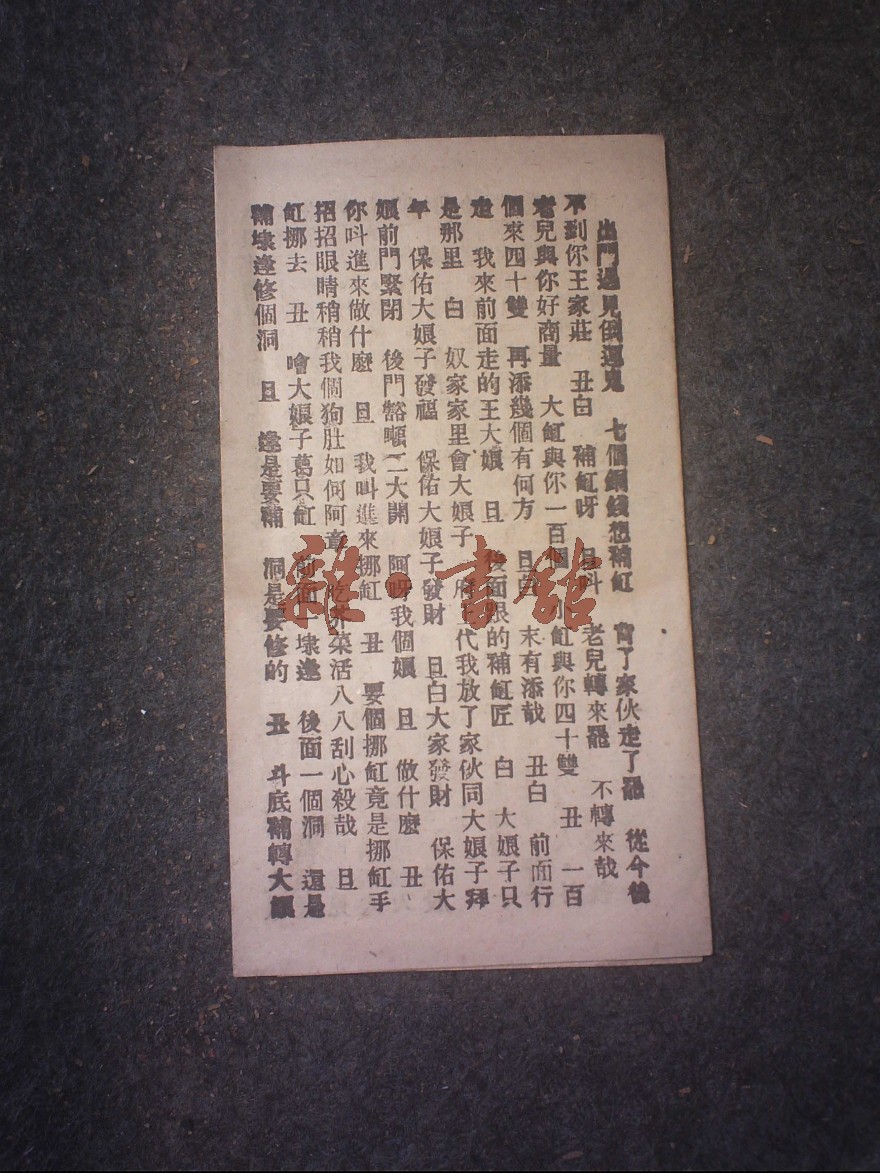 出門遇見倒運鬼　七個銅錢想補缸　背了家伙走了罷　從今後
不到你王家莊　丑白　補缸呀　旦叫　老兒轉來罷　不轉來哉
老兒與你好商量　大缸與你一百個　小缸與你四十雙　丑　一百
個來四十雙　再添幾個有何方　旦白　末有添哉　丑白　前面行
走　我來前面走的王大娘　旦　後面跟的補缸匠　白　大娘子只
是那里　白　奴家家里會大娘子　代我放了家伙同大娘子拜
年　保佑大娘子發福　保佑大娘子發財　旦白大家發財　保佑大
娘前門緊閉　後門豁噸二大開　阿呀我個娘　旦　做什麽　丑
你呌進來做什麽　旦　我叫進來挪缸　丑　要個挪缸竟是挪缸手
招招眼睛稍稍我個狗肚如何阿　吃芥菜活八八刮心殺哉　旦
缸挪去　丑　噲大娘子葛只缸　前面一埭逢　後面一個洞　還是
補埭逢修個洞　旦　逢是要補　洞是要修的　丑　斗底補轉大娘
雜·書館